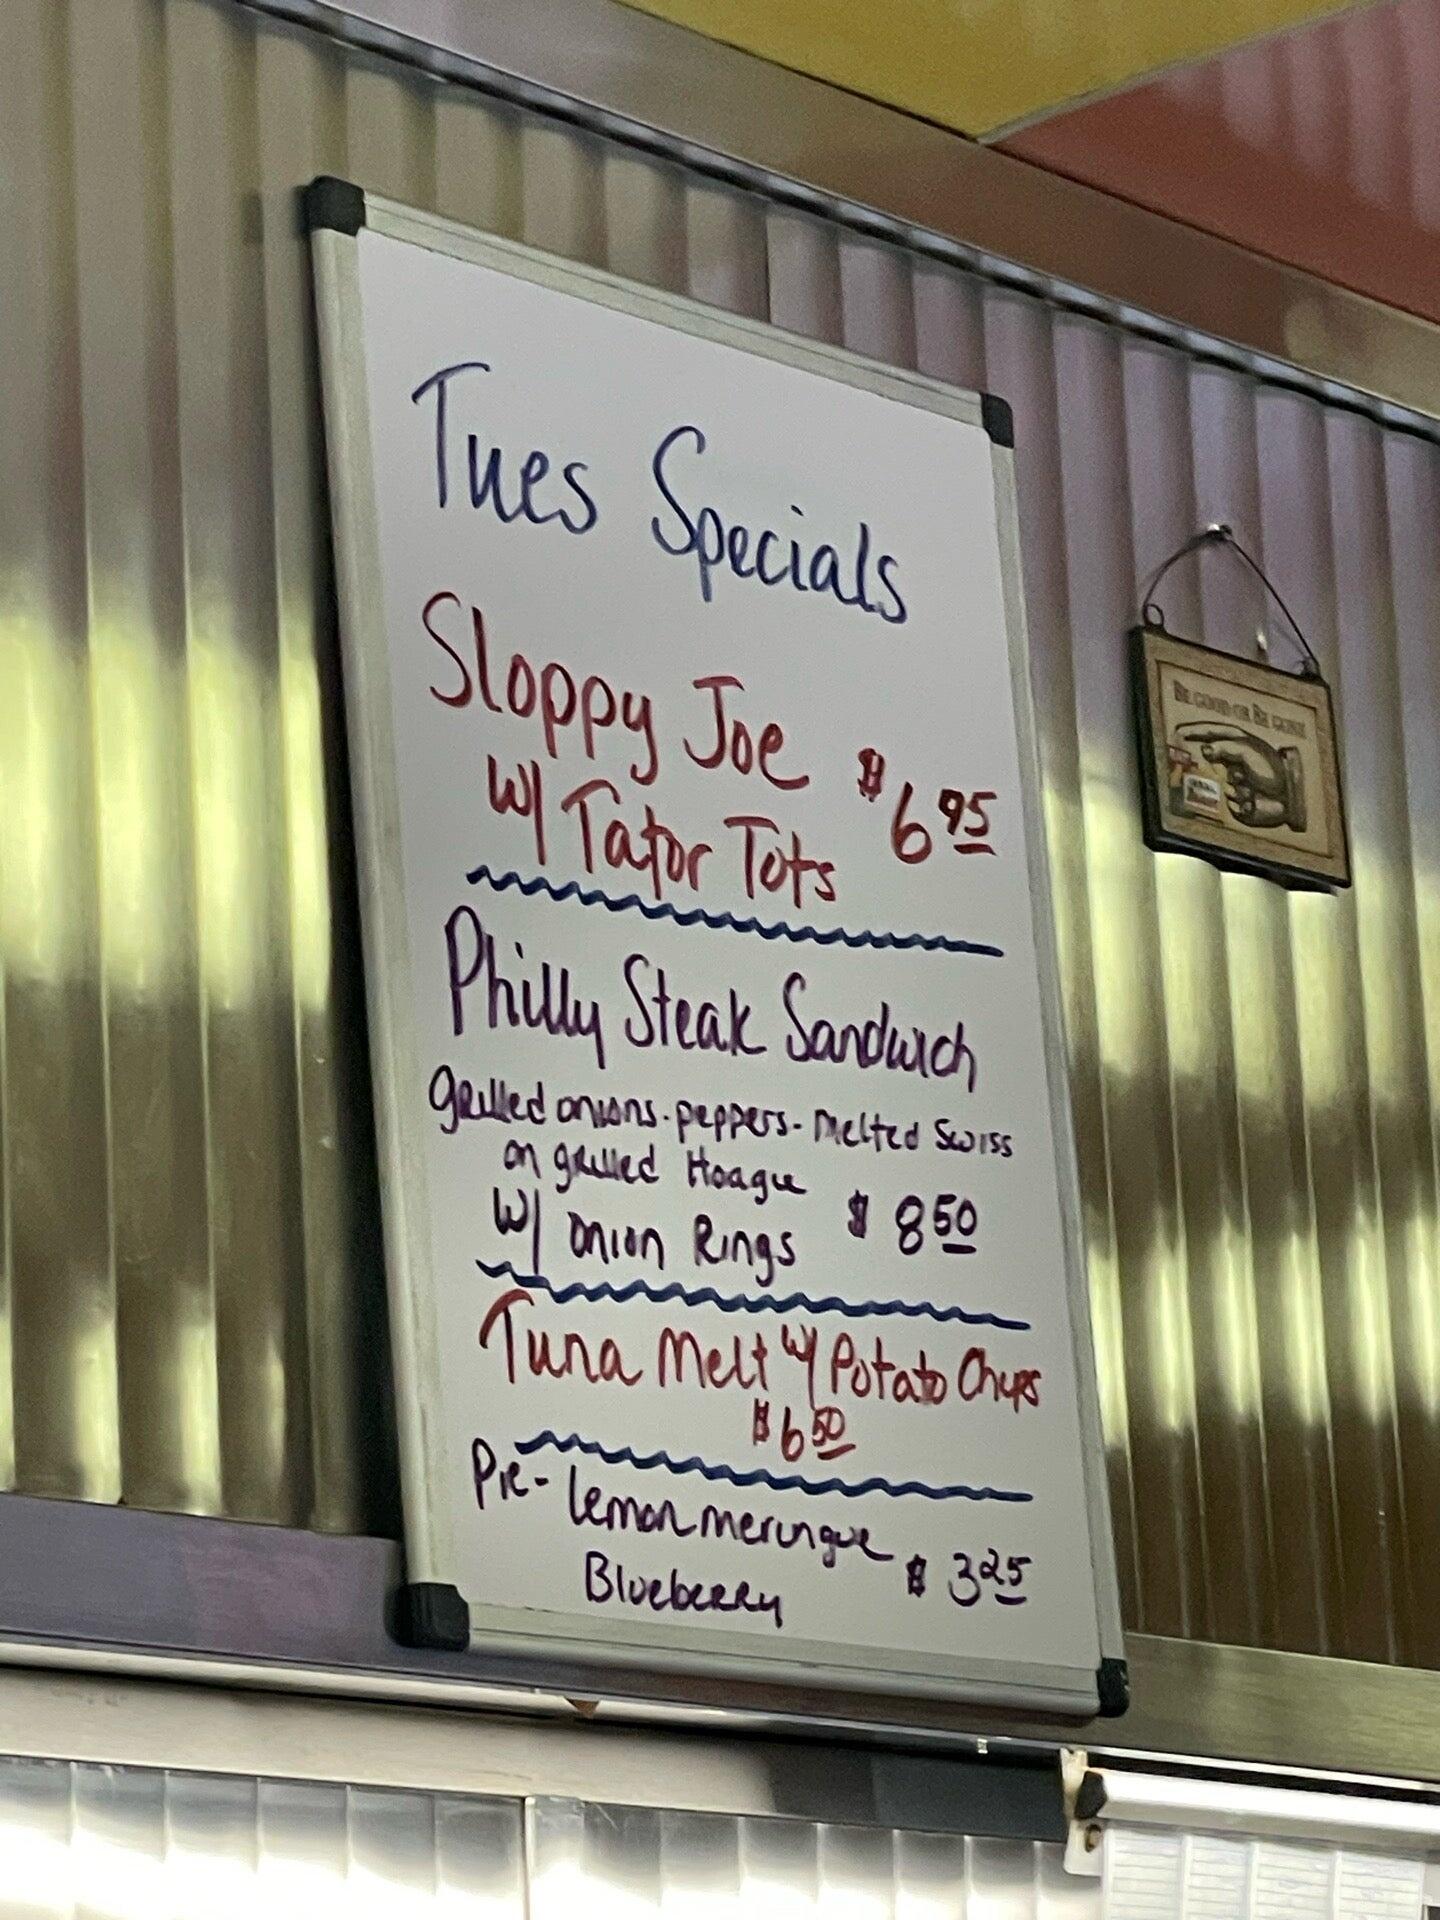 Tues Specials
Sloppy Joe
w/ Tator Tots $6.95
Philly Steak Sandwich
Grilled onions - peppers - Melted Swiss
on grilled Hoagie
w/ onion Rings $8.50
Tuna Melt w/ Potato Chips
$6.50
Pie - lemon meringue
Blueberry $3.25
BE GOOD OR BE GONE